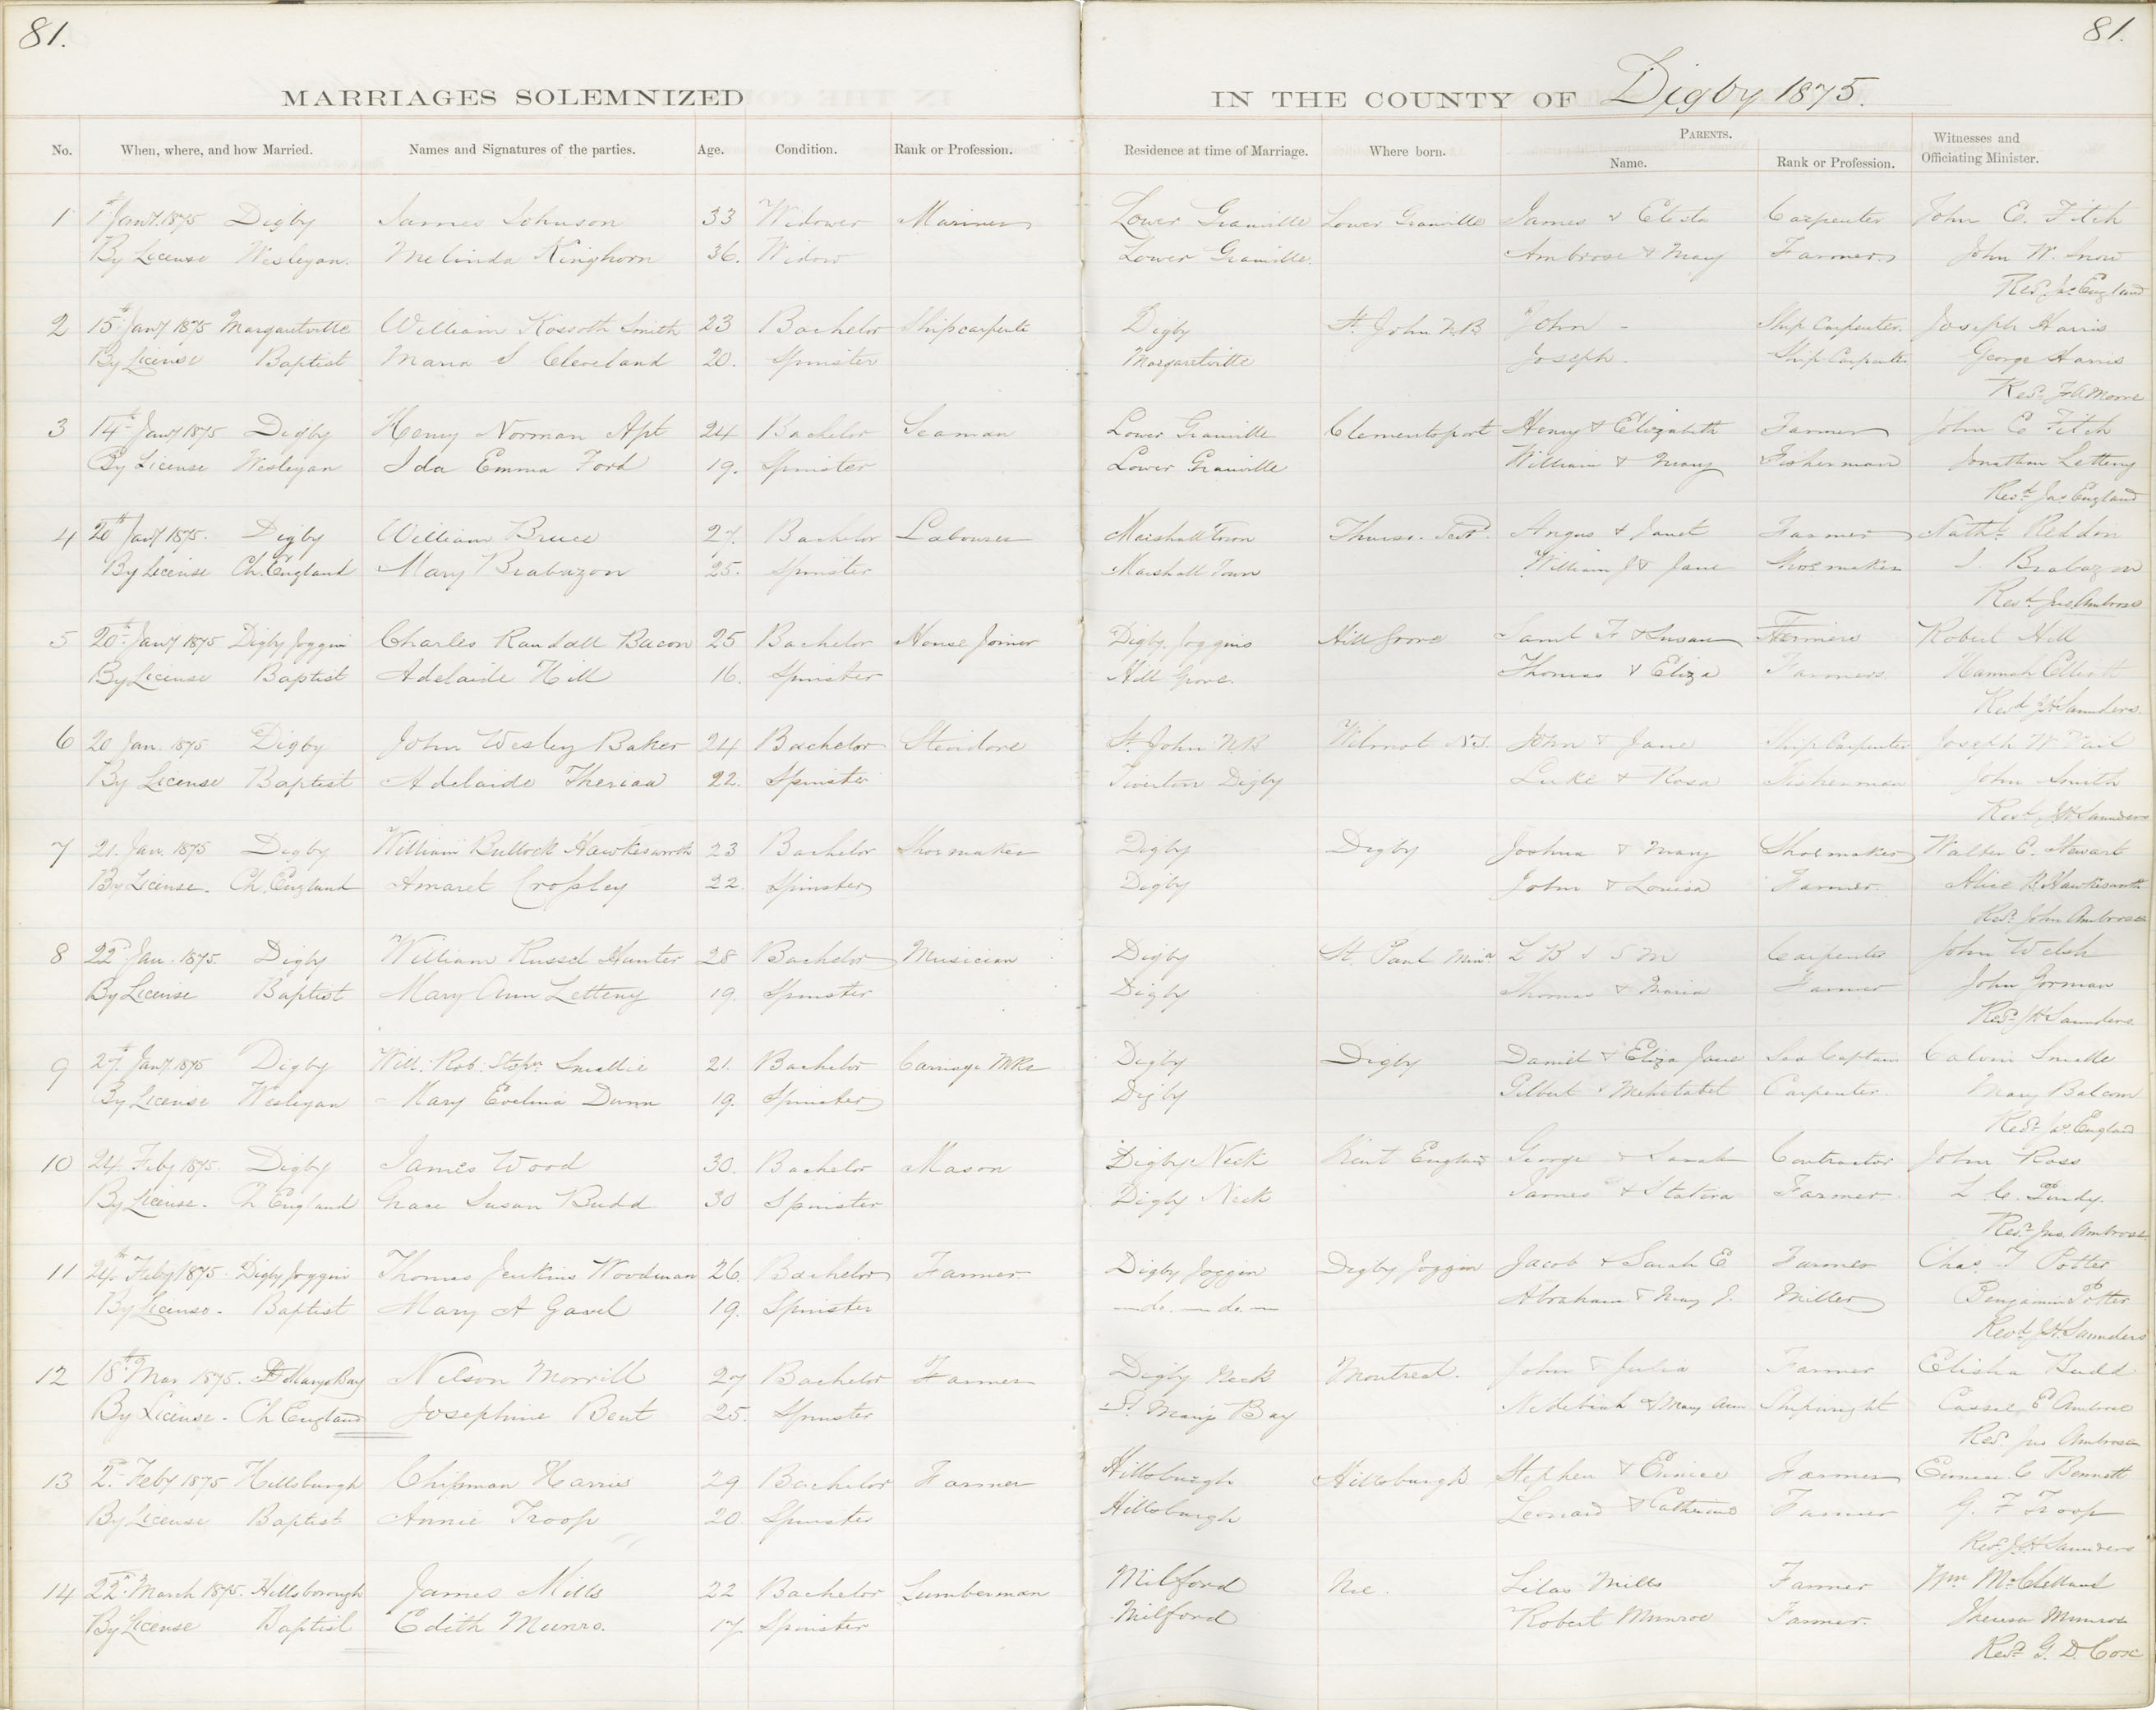 81.
81.
MARRIAGES SOLEMNIZED IN THE COUNTY OF Digby 1875.
No. When, where, and how Married. Names and Signatures of the parties. Age. Condition. Rank or Profession. Residence at time of Marriage. Where born. PARENTS. Name. Rank or Profession. Witnesses and Officiating Minister.
1 1st Jany. 1875 Digby James Johnson 33 Widower Mariner Lower Granville Lower Granville James & Electa Carpenter John E. Fitch
By License Wesleyan. Melinda Kinghorn 36. Widow Lower Granville. Ambrose & Mary Farmer John W. Snow
Revd. Jas England
2 15th Jany 1875 Margaretville William Kossoth Smith 23 Bachelor Shipcarpente Digby St. John N.B John - Ship Carpenter. Joseph Harris
By License Baptist Maria S Cleveland 20. Spinster Margaretville Joseph - Ship Carpenter George Harris
Revd. Moore
3 14th Jany 1875 Digby Henry Norman Apt 24 Bachelor Seaman Lower Granville Clementsport Henry & Elizabeth Farmer John E Fitch
By License Wesleyan Ida Emma Ford 19. Spinster Lower Granville William & Mary Fisherman Jonathan Letteny
Revd. Jas England
4 20th Jany 1875. Digby William Bruce 27. Bachelor Labourer Marshall Town Thurso. Scot. Angus & Janet Farmer Nathl. Reddon
By License Ch. England Mary Brabazon 25. Spinster Marshall Town William J & Jane Shoemaker J. Brabazon
Revd. Jno Ambrose
5 20th Jany 1875 Digby Joggin Charles Randall Bacon 25 Bachelor House Joiner Digby Joggins Hill Grove Saml F & Susan Farmers Robert Hill
By License Baptist Adelaide Hill 16. Spinster Hill Grove. Thomas & Eliza Farmers. Hannah Elliott
Revd JH Saunders.
6 20 Jan. 1875 Digby John Wesley Baker 24 Bachelor Stevidore St. John NB Wilmot N.S. John & Jane Ship Carpenter Joseph W Vail
By License Baptist Adelaide Theriau 22. Spinster Tiverton Digby Luke & Rosa Fisherman John Smith
Revd. JH Saunders
7 21. Jan. 1875 Digby William Bullock Hawkesworth 23 Bachelor Shoemaker Digby Digby Joshua & Mary Shoemaker Walter E. Stewart
By License. Ch. England Amaret Crossley 22. Spinster Digby John & Louisa Farmer. Alice B. Hawkesworth
Revd. John Ambrose
8 22d Jan. 1875. Digby William Russel Hunter 28 Bachelor Musician Digby St. Paul Mina. L B & S M Carpenter John Welsh
By License Baptist Mary Ann Letteny 19. Spinster Digby Thomas & Maria Farmer John Gorman
Revd. JH Saunders.
9 27th Jany. 1875 Digby Will: Rob: Stephn Smallie 21. Bachelor Carriage Mkr Digby Digby Daniel & Eliza Jane Sea Captain Calvin Smalle
By License Wesleyan Mary Evelina Dunn 19. Spinster Digby Gilbert & Mehetabel Carpenter. Mary Balcom
Revd. Jas. England
10 24. Feby 1875. Digby James Wood 30. Bachelor Mason Digby Neck Kent England George & Sarah Contractor John Ross
By License. Ch England Grace Susan Budd 30 Spinster Digby Neck James & Statira Farmer.
Revd. Jno. Ambrose
11 24th Feby 1875. Digby Joggin Thomas Jenkins Woodman 26. Bachelor Farmer Digby Joggin Digby Joggin Jacob & Sarah E Farmer Chas. T Potter
By License. Baptist Mary A Gavel 19. Spinster —do.—do.— Abraham & Mary J. Miller Benjamin Potter
Revd JH Saunders
12 18th Mar 1875. St Marys Bay Nelson Morrill 27 Bachelor Farmer Digby Neck Montreal. John & Julia Farmer Elisha Budd
By License. Ch England Josephine Bent 25. Spinster St. Mary's Bay & Mary Ann Shipwright Cassie E Ambrose
Revd. Jno Ambrose
13 2d. Feby 1875 Hillsburgh Chipman Harris 29 Bachelor Farmer Hillsburgh Hillsburgh Stephen & Eunice Farmer Eunice C Bennett
By License Baptist Annie Troop 20. Spinster Hillsburgh Leonard & Catherine Farmer G. F Troop
Revd. JH Saunders
14 22d. March 1875. Hillsborough James Mills 22 Bachelor Lumberman Milford Silas Mills Farmer Wm McClelland
By License Baptist Edith Munro. 17. Spinster Milford Robert Munroe Farmer. Theresa Munroe
Revd. G. D. Cox